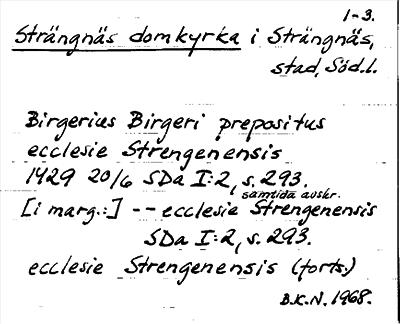 1-3.
Strängnäs domkyrka i Strängnäs,
stad, Söd.l.
Birgerius Birgeri prepositus
ecclesie Strengenensis
1429 20/6 SDa I:2, s. 293.
samtida avskr.
[i marg.:] -- ecclesie Strengenensis
SDa I:2, s. 293.
ecclesie Strengenensis (forts.)
B.K.N. 1968.